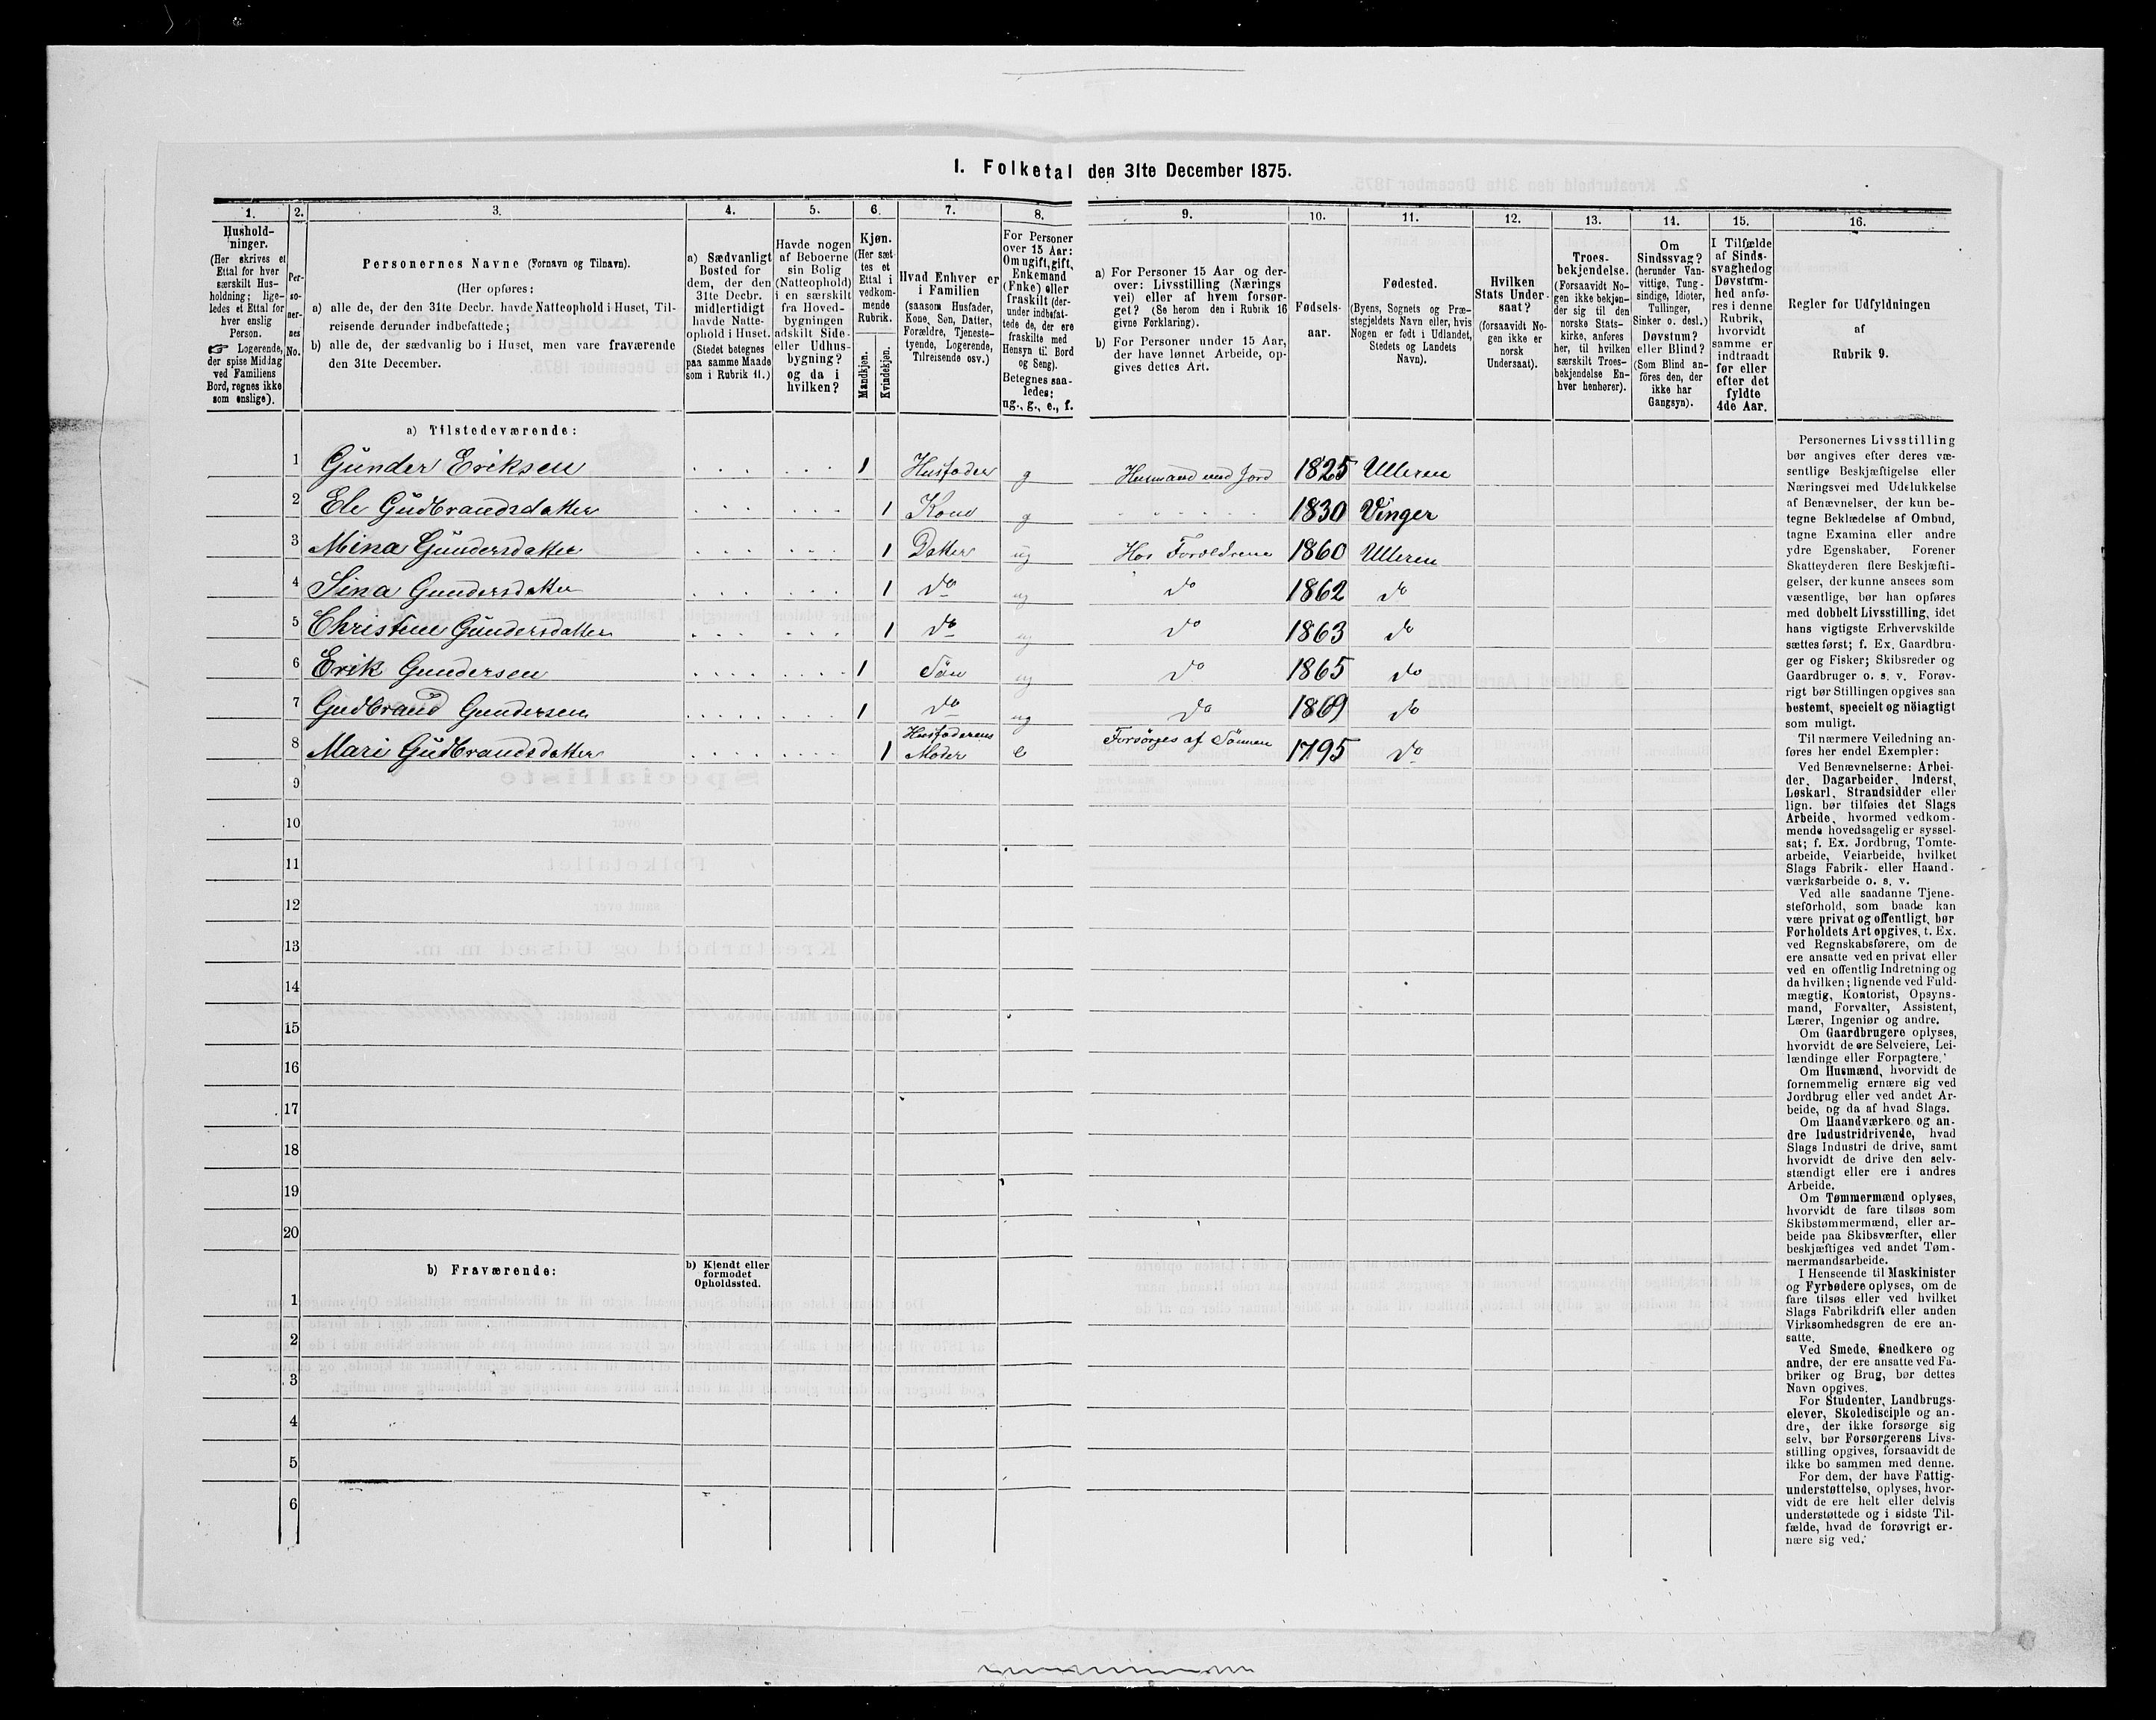 1. Folketal den 31te December 1875.
1.
2.
3.
4.
5.
6.
7.
8.
9.
10.
11.
12.
13.
14.
15.
16.
Hushold-
ninger.
(Her skrives et
Ettal for hver
særskilt Hus-
holdning; lige-
ledes et Ettal for
hver enslig
Person.
☞ Logerende,
der spise Middag
ved Familiens
Bord, regnes ikke
som enslige).
Per-
so-
ner-
nes
No.
Personernes Navne (Fornavn og Tilnavn).
(Her opføres:
a) alle de, der den 31te Decbr. havde Natteophold i Huset, Til-
reisende derunder indbefattede;
b) alle de, der sædvanlig bo i Huset, men vare fraværende
den 31te December.
a) Sædvanligt
Bosted for
dem, der den
31te Decbr.
midlertidigt
havde Natte-
ophold i Huset.
(Stedet betegnes
paa samme Maade
som i Rubrik 11.)
Havde nogen
af Beboerne
sin Bolig
(Natteophold)
i en særskilt
fra Hoved-
bygningen
adskilt Side-
eller Udhus-
bygning?
og da i
hvilken?
Kjøn.
(Her sæt-
tes et
Ettal i
vedkom-
mende
Rubrik.
Mandkjøn.
Kvindekjøn.
Hvad Enhver er
i Familien
(saasom Husfader,
Kone, Søn, Datter,
Forældre, Tjeneste-
tyende, Logerende,
Tilreisende osv.)
For Personer
over 15 Aar:
Om ugift, gift,
Enkemand
(Enke) eller
fraskilt (der-
under indbefat-
tede de, der ere
fraskilte med
Hensyn til Bord
og Seng).
Betegnes saa-
ledes:
ug., g., e., f.
a) For Personer 15 Aar og der-
over: Livsstilling (Nærings
vei) eller af hvem forsør-
get? (Se herom den i Rubrik 16
givne Forklaring).
b) For Personer under 15 Aar,
der have lønnet Arbeide, op-
gives dettes Art.
Fødsels-
aar.
Fødested.
(Byens, Sognets og Præ-
stegjeldets Navn eller, hvis
Nogen er født i Udlandet,
Stedets og Landets
Navn).
Hvilken
Stats Under-
saat?
(forsaavidt No-
gen ikke er
norsk
Undersaat).
Troes-
bekjendelse.
(Forsaavidt No-
gen ikke bekjen-
der sig til den
norske Stats-
kirke, anføres
her, til hvilken
særskilt Troes-
bekjendelse En-
hver henhører).
Om
Sindssvag?
(herunder Van-
vittige, Tung-
sindige, Idioter,
Tullinger,
Sinker o. desl.)
Døvstum?
eller Blind?
(Som Blind an-
föres den, der
ikke har
Gangsyn).
I Tilfælde
af Sinds-
svaghed og
Døvstum-
hed anfø-
res i denne
Rubrik,
hvorvidt
samme er
indtraadt
før eller
efter det
fyldte
4de Aar.
Regler for Udfyldningen
af
Rubrik 9.
a) Tilstedeværende:
1 Gunder Eriksen 1 Husfader g Husmand med Jord 1825 Ulleren
2 Ele Gudbrandsdatter 1 Kone g 1830 Vinger
3 Mina Gundersdatter 1 Datter ug Hos Forældrene 1860 Ulleren
4 Sina Gundersdatter 1 do ug do 1862 do
5 Christene Gundersdatter 1 do ug do 1863 do
6 Erik Gundersen 1 Søn ug do 1865 do
7 Gudbrand Gundersen 1 do ug do 1869 do
8 Mari Gudbrandsdatter 1 Husfaderens Moder e Forsørges af Sønnen 1795 do
9
10
11
12
13
14
15
16
17
18
19
20
b) Fraværende:
b) Kjendt eller
formodet
Opholdssted.
1
2
3
4
5
6
Personernes Livsstilling
bør angives efter deres væ-
sentlige Beskjæftigelse eller
Næringsvei med Udelukkelse
af Benævnelser, der kun be-
tegne Beklædelse af Ombud,
tagne Examina eller andre
ydre Egenskaber. Forener
Skatteyderen flere Beskjæfti-
gelser, der kunne ansees som
væsentlige, bør han opføres
med dobbelt Livsstilling, idet
hans vigtigste Erhvervskilde
sættes først; f. Ex. Gaardbru-
ger og Fisker; Skibsreder og
Gaardbruger o. s. v. Forøv-
rigt bør Stillingen opgives saa
bestemt, specielt og nöiagtigt
som muligt.
Til nærmere Veiledning an-
føres her endel Exempler:
Ved Benævnelserne: Arbei-
der, Dagarbeider, Inderst,
Løskarl, Strandsidder eller
lign. bør tilføies det Slags
Arbeide, hvormed vedkom-
mende hovedsagelig er syssel-
sat; f. Ex. Jordbrug, Tomte-
arbeide, Veiarbeide, hvilket
Slags Fabrik- eller Haand-
værksarbeide o. s. v.
Ved alle saadanne Tjene-
steforhold, som baade kan
være privat og offentligt, bør
Forholdets Art opgives, t. Ex.
ved Regnskabsførere, om de
ere ansatte ved en privat eller
ved en offentlig Indretning og
da hvilken; lignende ved Fuld-
mægtig, Kontorist, Opsyns-
mand, Forvalter, Assistent,
Lærer, Ingeniør og andre.
Om Gaardbrugere oplyses,
hvorvidt de ere Selveiere, Lei-
lændinge eller Forpagtere.
Om Husmænd, hvorvidt de
fornemmelig ernære sig ved
Jordbrug eller ved andet Ar-
beide, og da af hvad Slags.
Om Haandværkere og an-
dre Industridrivende, hvad
Slags Industri de drive, samt
hvorvidt de drive den selv-
stændigt eller ere i andres
Arbeide.
Om Tømmermænd oplyses,
hvorvidt de fare tilsøs som
Skibstømmermænd, eller ar-
beide paa Skibsværfter, eller
beskjæftiges ved andet Tøm-
mermandsarbeide.
I Henseende til Maskinister
og Fyrbødere oplyses, om de
fare tilsøs eller ved hvilket
Slags Fabrikdrift eller anden
Virksomhedsgren de ere an-
satte.
Ved Smede, Snedkere og
andre, der ere ansatte ved Fa-
briker og Brug, bør dettes
Navn opgives.
For Studenter, Landbrugs-
elever, Skoledisciple og an-
dre, der ikke forsørge sig
selv, bør Forsørgerens Livs-
stilling opgives, forsaavidt de
ikke bo sammen med denne.
For dem, der have Fattig-
understøttelse, oplyses, hvor-
vidt de ere helt eller delvis
understøttede og i sidste Til-
fælde, hvad de forøvrigt er-
nære sig ved.